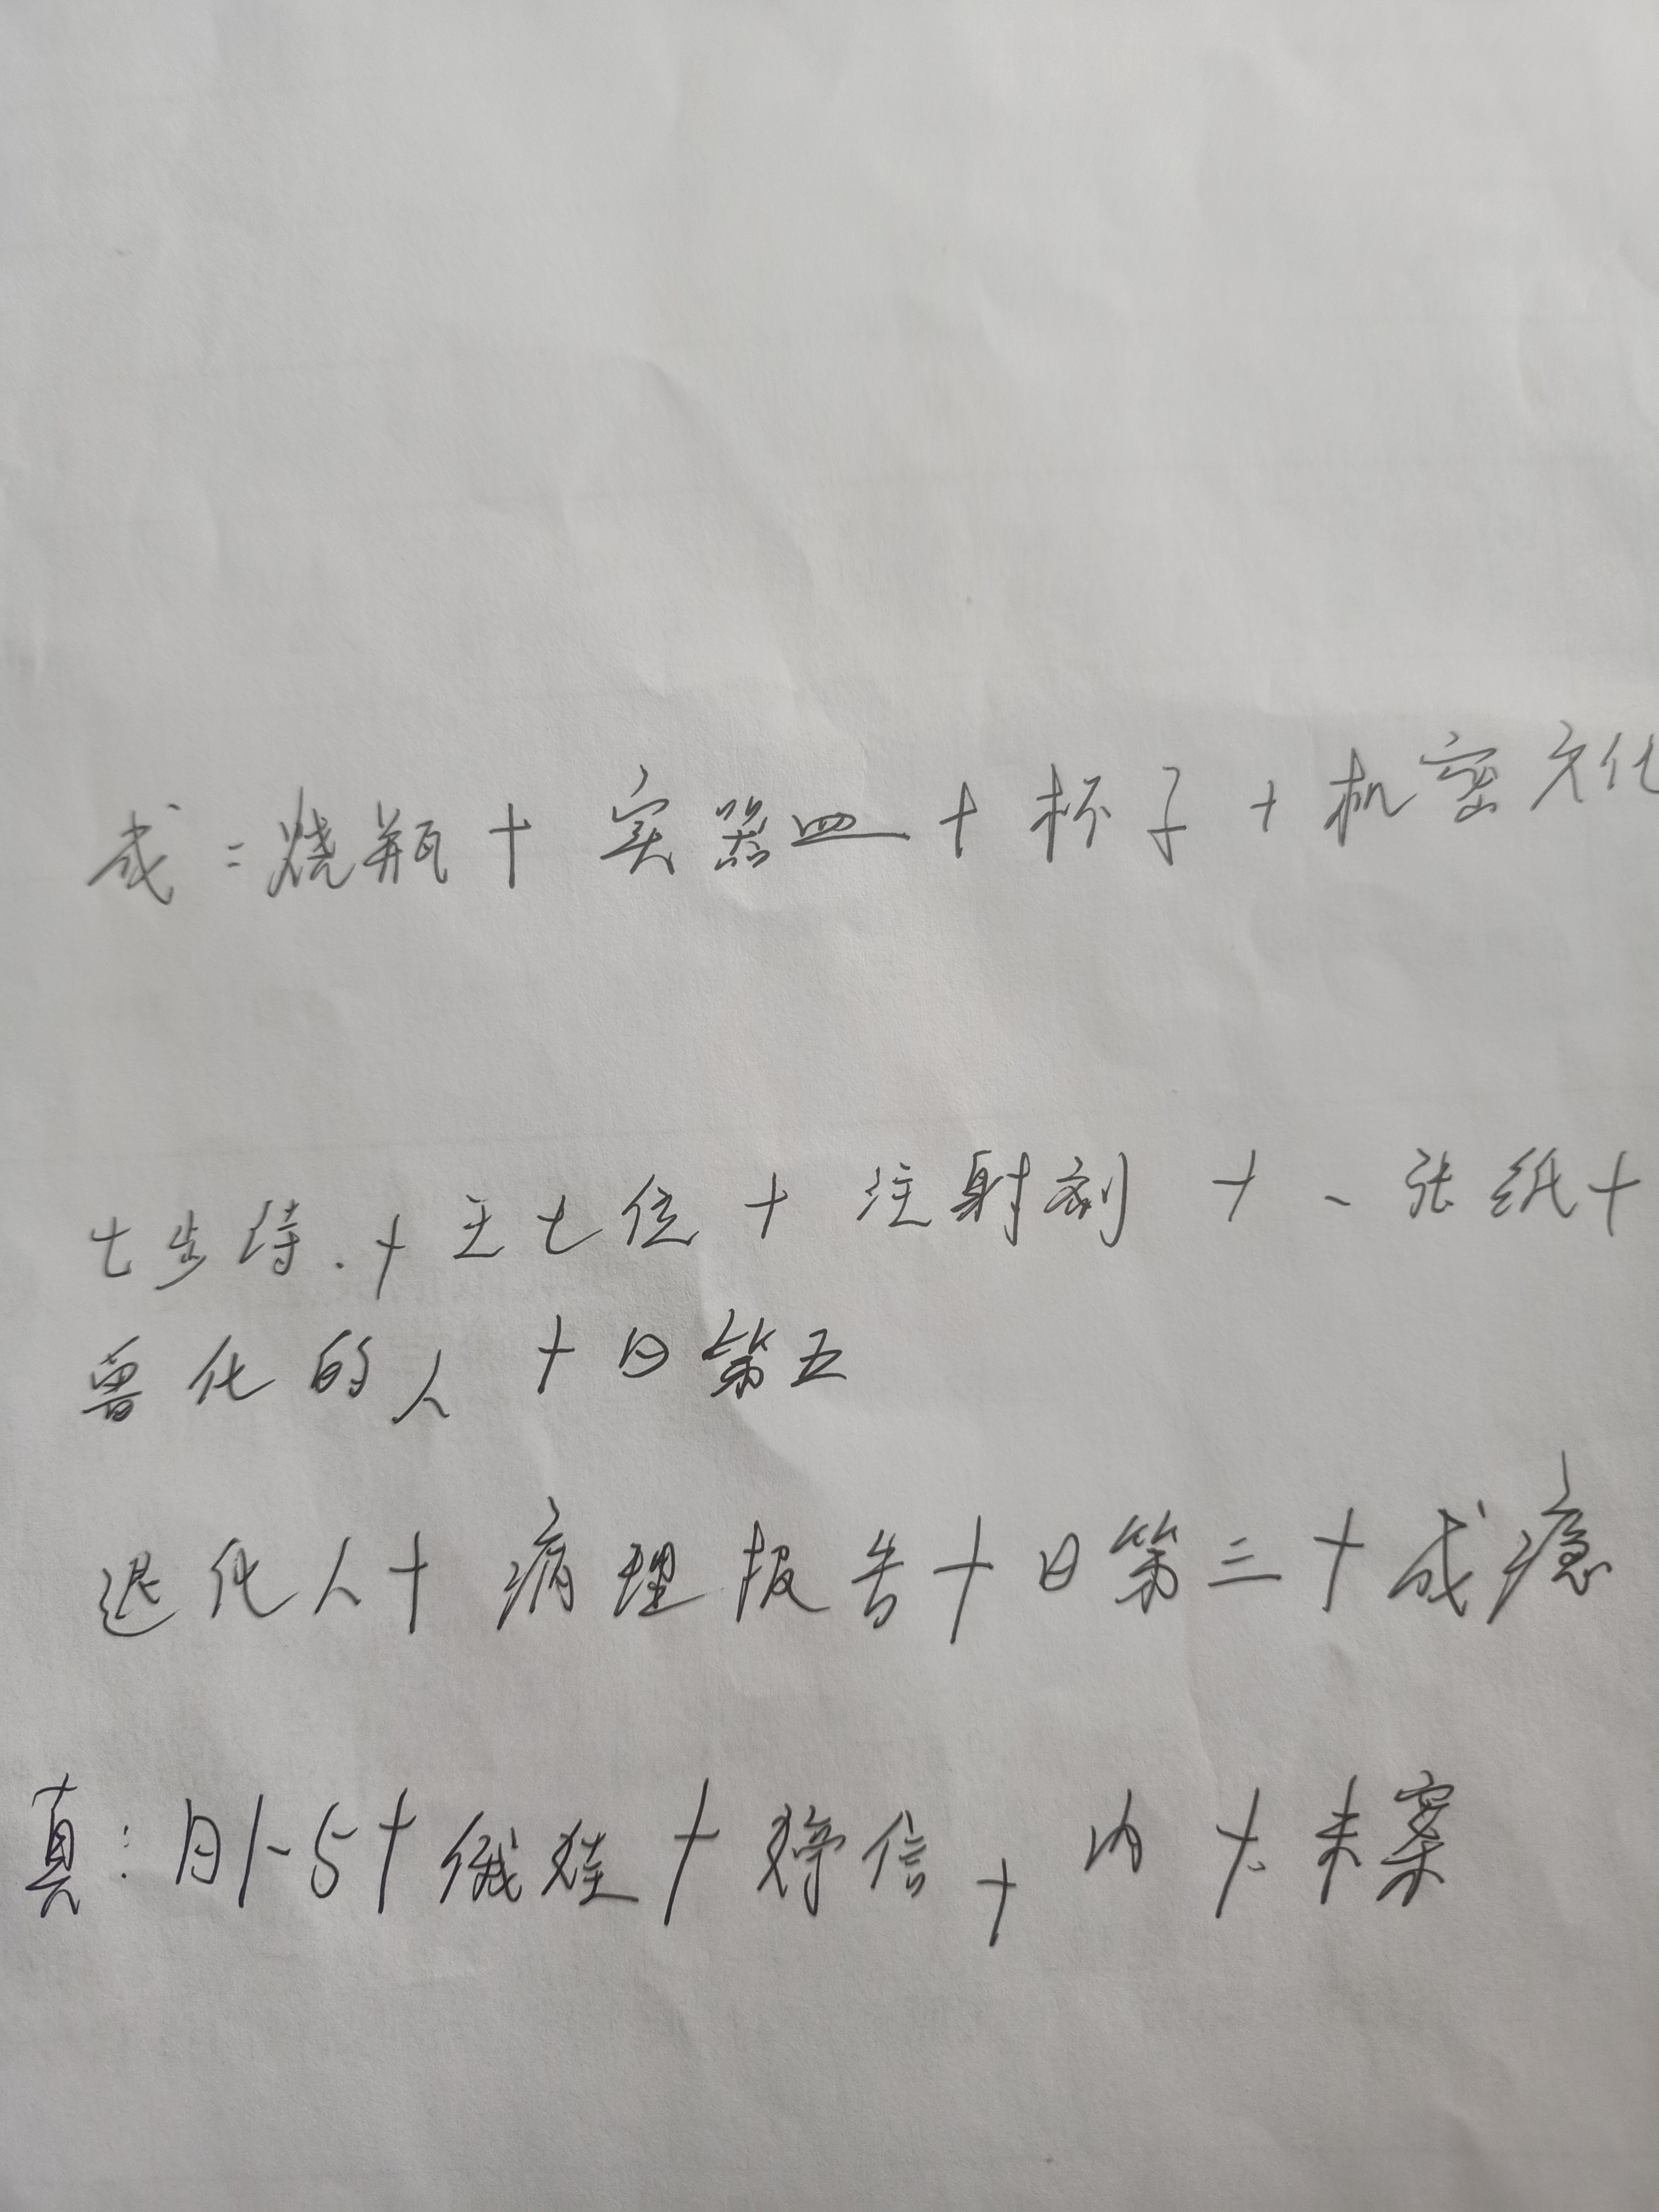 成:烧瓶+实器皿+杯子+机密文化
七步待.+王七位+注射剂+、张纸+
兽化的人+日第五
退化人+病理报告+日第三+成瘾
真:日1-5+俄娃+信+内+未案